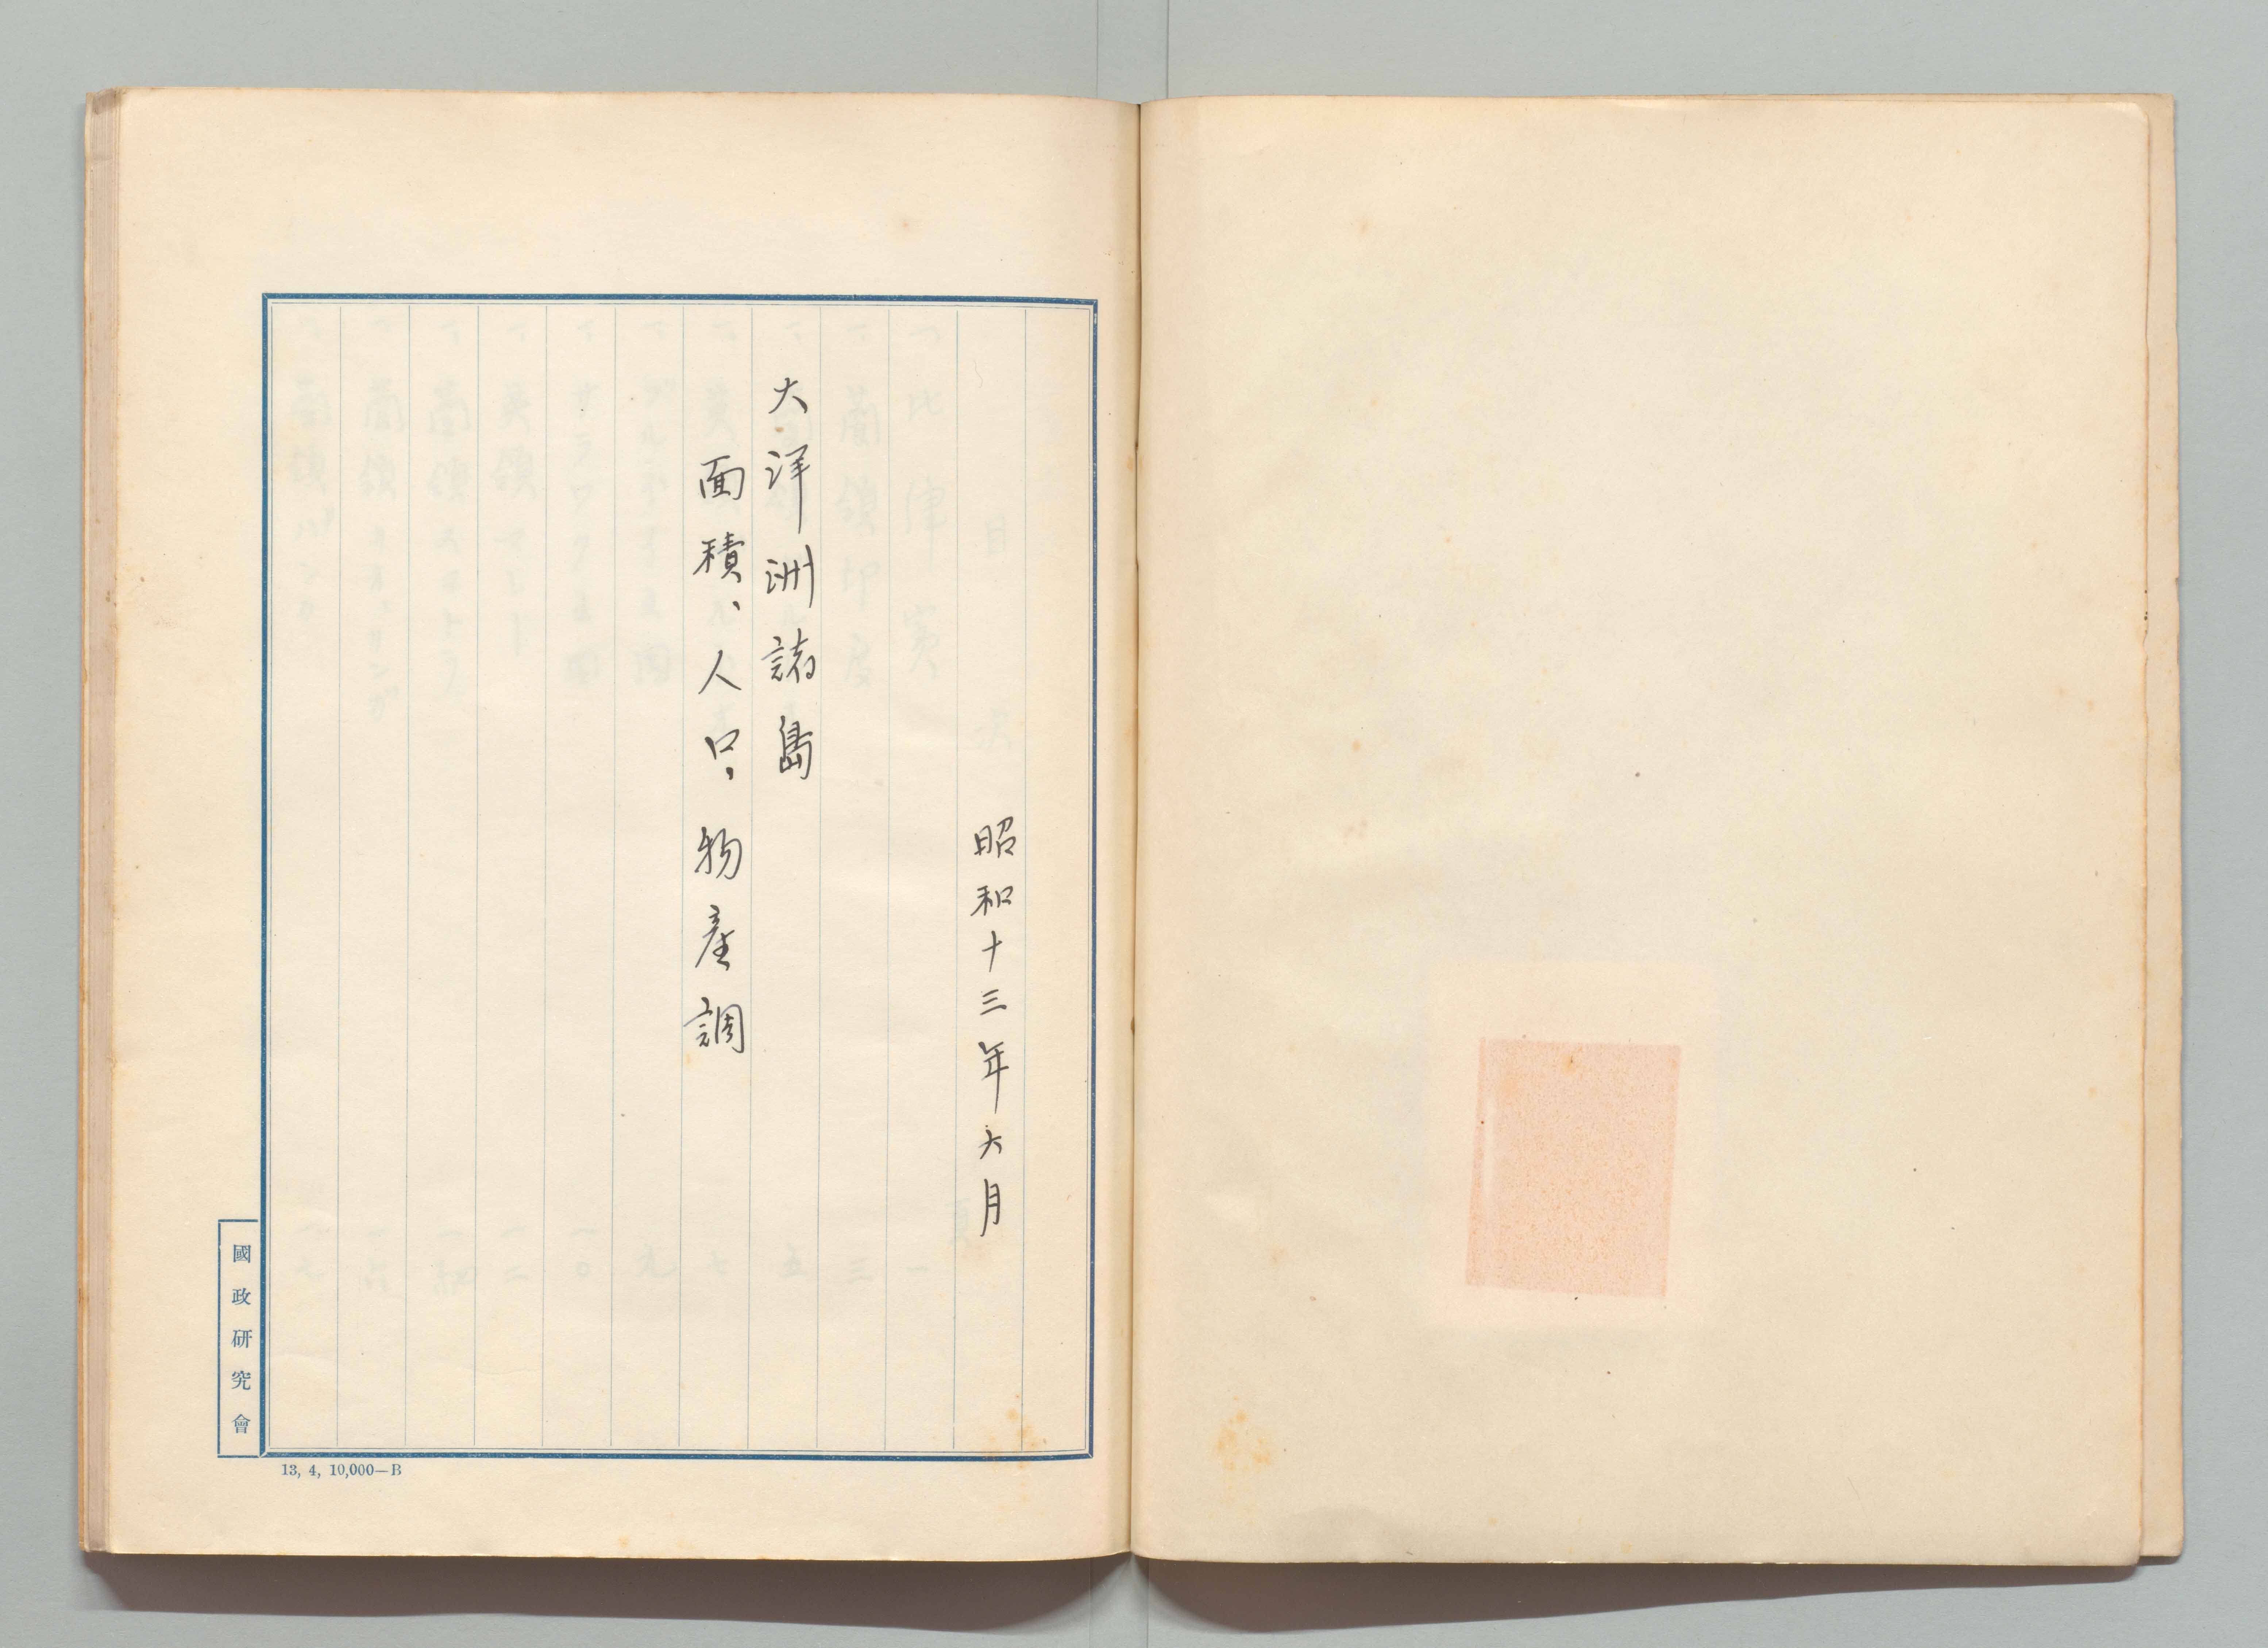 昭和十三年六月
大洋洲諸島
面積、人口、物産調
國政研究會
13, 4, 10,000—B